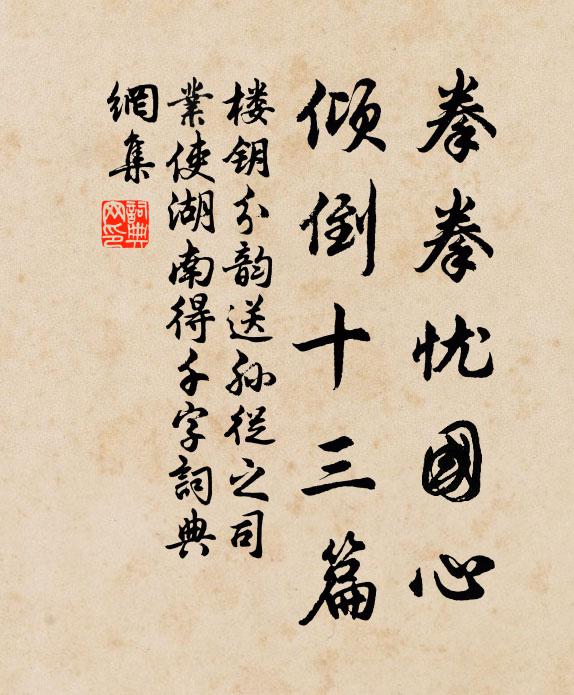 拳拳忧國心
倾倒十三篇
楼钥分韵送孙從之司
業使湖南得千字詞典
網集
詞典
网印